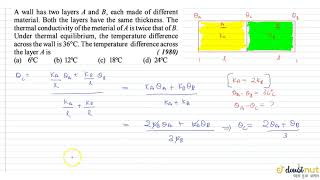 A wall has two layers A and B, each made of different
material. Both the layers have the same thickness. The
thermal conductivity of the meterial of A is twice that of B.
Under thermal equilibrium, the temperature difference
across the wall is 36°C. The temperature difference across
the layer A is ( 1980)
(a) 6°C (b) 12°C (c) 18°C (d) 24°C
θA θc θB
KA KB
l l
θc = KA/l θA + KB/l θB
KA/l + KB/l
[KA = 2KB]
θA - θB = 36°C
θA - θc = ?
= KA θA + KB θB
KA + KB
= 2KB θA + KB θB
3KB
⇒ θc = 2θA + θB
3
doubtnut